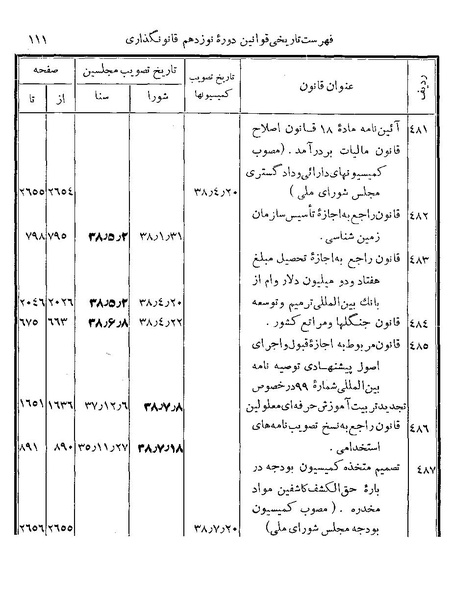 فهرست تاریخی قوانین دورهٔ نوزدهم قانونگذاری ۱۱۱
ردیف عنوان قانون تاریخ تصویب کمیسیونها تاریخ تصویب مجلسین صفحه
شورا سنا از تا
۴۸۱ آئین‌نامه مادهٔ ۱۸ قانون اصلاح
قانون مالیات بردرآمد . (مصوب
کمیسیونهای دارائی و دادگستری
مجلس شورای ملی ) ۳۸٫۴٫۲۰ ۲۶۵۴ ۲۶۵۵
۴۸۲ قانون راجع به اجازهٔ تأسیس سازمان
زمین شناسی . ۳۸٫۱٫۳۱ ۳۸٫۵٫۲ ۷۹۵ ۷۹۸
۴۸۳ قانون راجع به اجازهٔ تحصیل مبلغ
هفتاد و دو میلیون دلار وام از
بانک بین‌المللی ترمیم و توسعه ۳۸٫۴٫۲۰ ۳۸٫۵٫۲ ۲۰۲۶ ۲۰۴۶
۴۸۴ قانون جنگلها و مراتع کشور . ۳۸٫۴٫۲۲ ۳۸٫۶٫۸ ۶۶۳ ۶۷۵
۴۸۵ قانون مربوط به اجازهٔ قبول و اجرای
اصول پیشنهادی توصیه نامه
بین‌المللی شمارهٔ ۹۹ درخصوص
تجدید تربیت آموزش حرفه‌ای معلولین ۳۸٫۷٫۸ ۳۷٫۱۲٫۶ ۱۶۳۶ ۱۶۵۱
۴۸۶ قانون راجع به نسخ تصویب نامه‌های
استخدامی . ۳۸٫۷٫۱۸ ۳۵٫۱۱٫۲۷ ۸۹۰ ۸۹۱
۴۸۷ تصمیم متخذه کمیسیون بودجه در
بارهٔ حق‌الکشف کاشفین مواد
مخدره . ( مصوب کمیسیون
بودجه مجلس شورای ملی) ۳۸٫۷٫۲۰ ۲۶۵۵ ۲۶۵۶